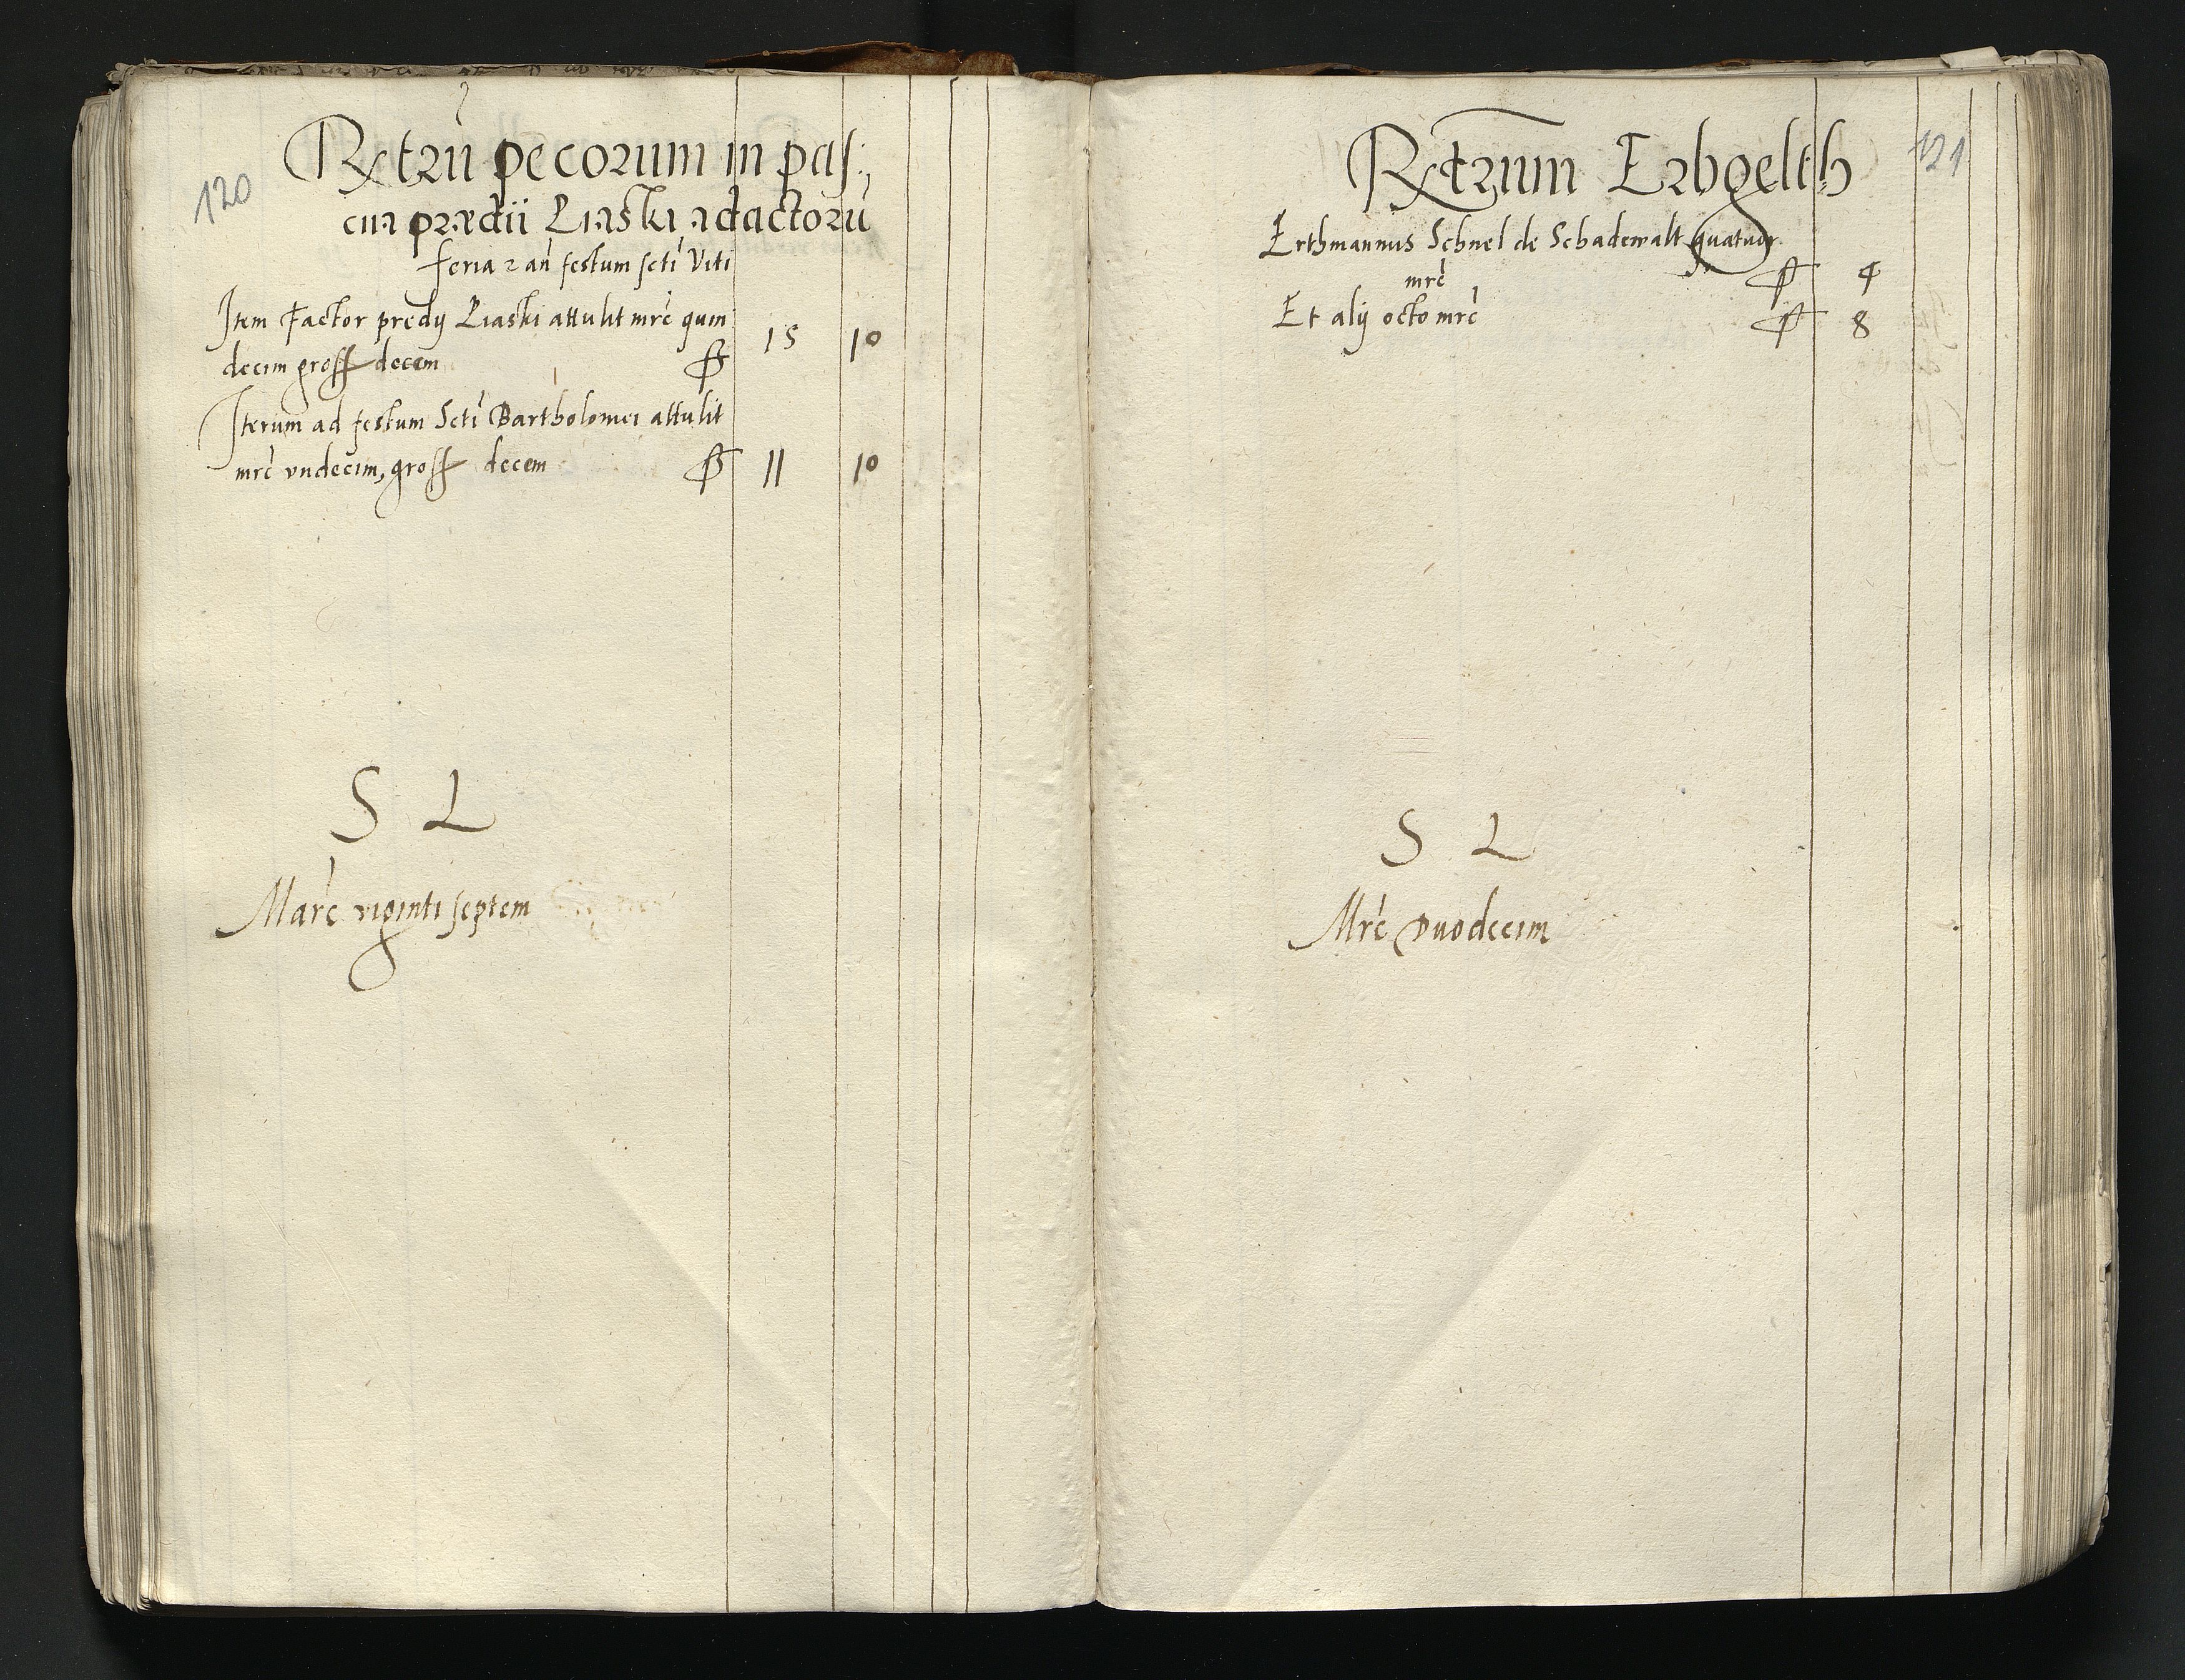 120
Rxtrū pecorum in pas:,
cua prædii Liaski adactorū
feria 2 an festum scti Viti
Item Factor predij Liaski attulit mrc quin
decim gross decem ꝑ 15 10
Iterum ad festum Scti Bartholomei attulit
mrc vndecim, gross decem ꝑ 11 10
S L
Marc viginti septem
121
Rxtrum Erbgelth
Erthmannus Schnel de Schadewalt quatuor
mrc ꝑ 4
Et alij octo mrc ꝑ 8
S L
Mrc Duodecim